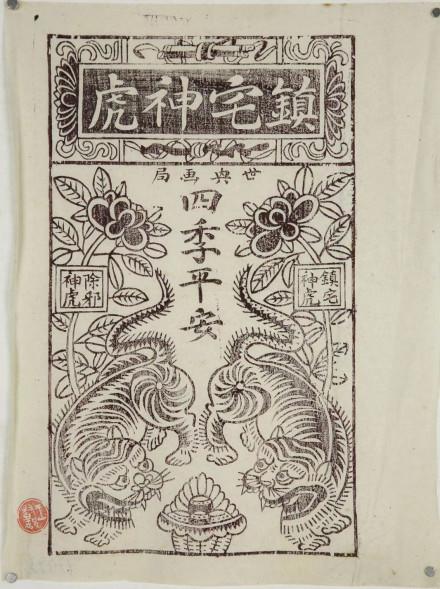 鎮宅神虎
世興画局
四季平安
鎮宅
神虎
除邪
神虎